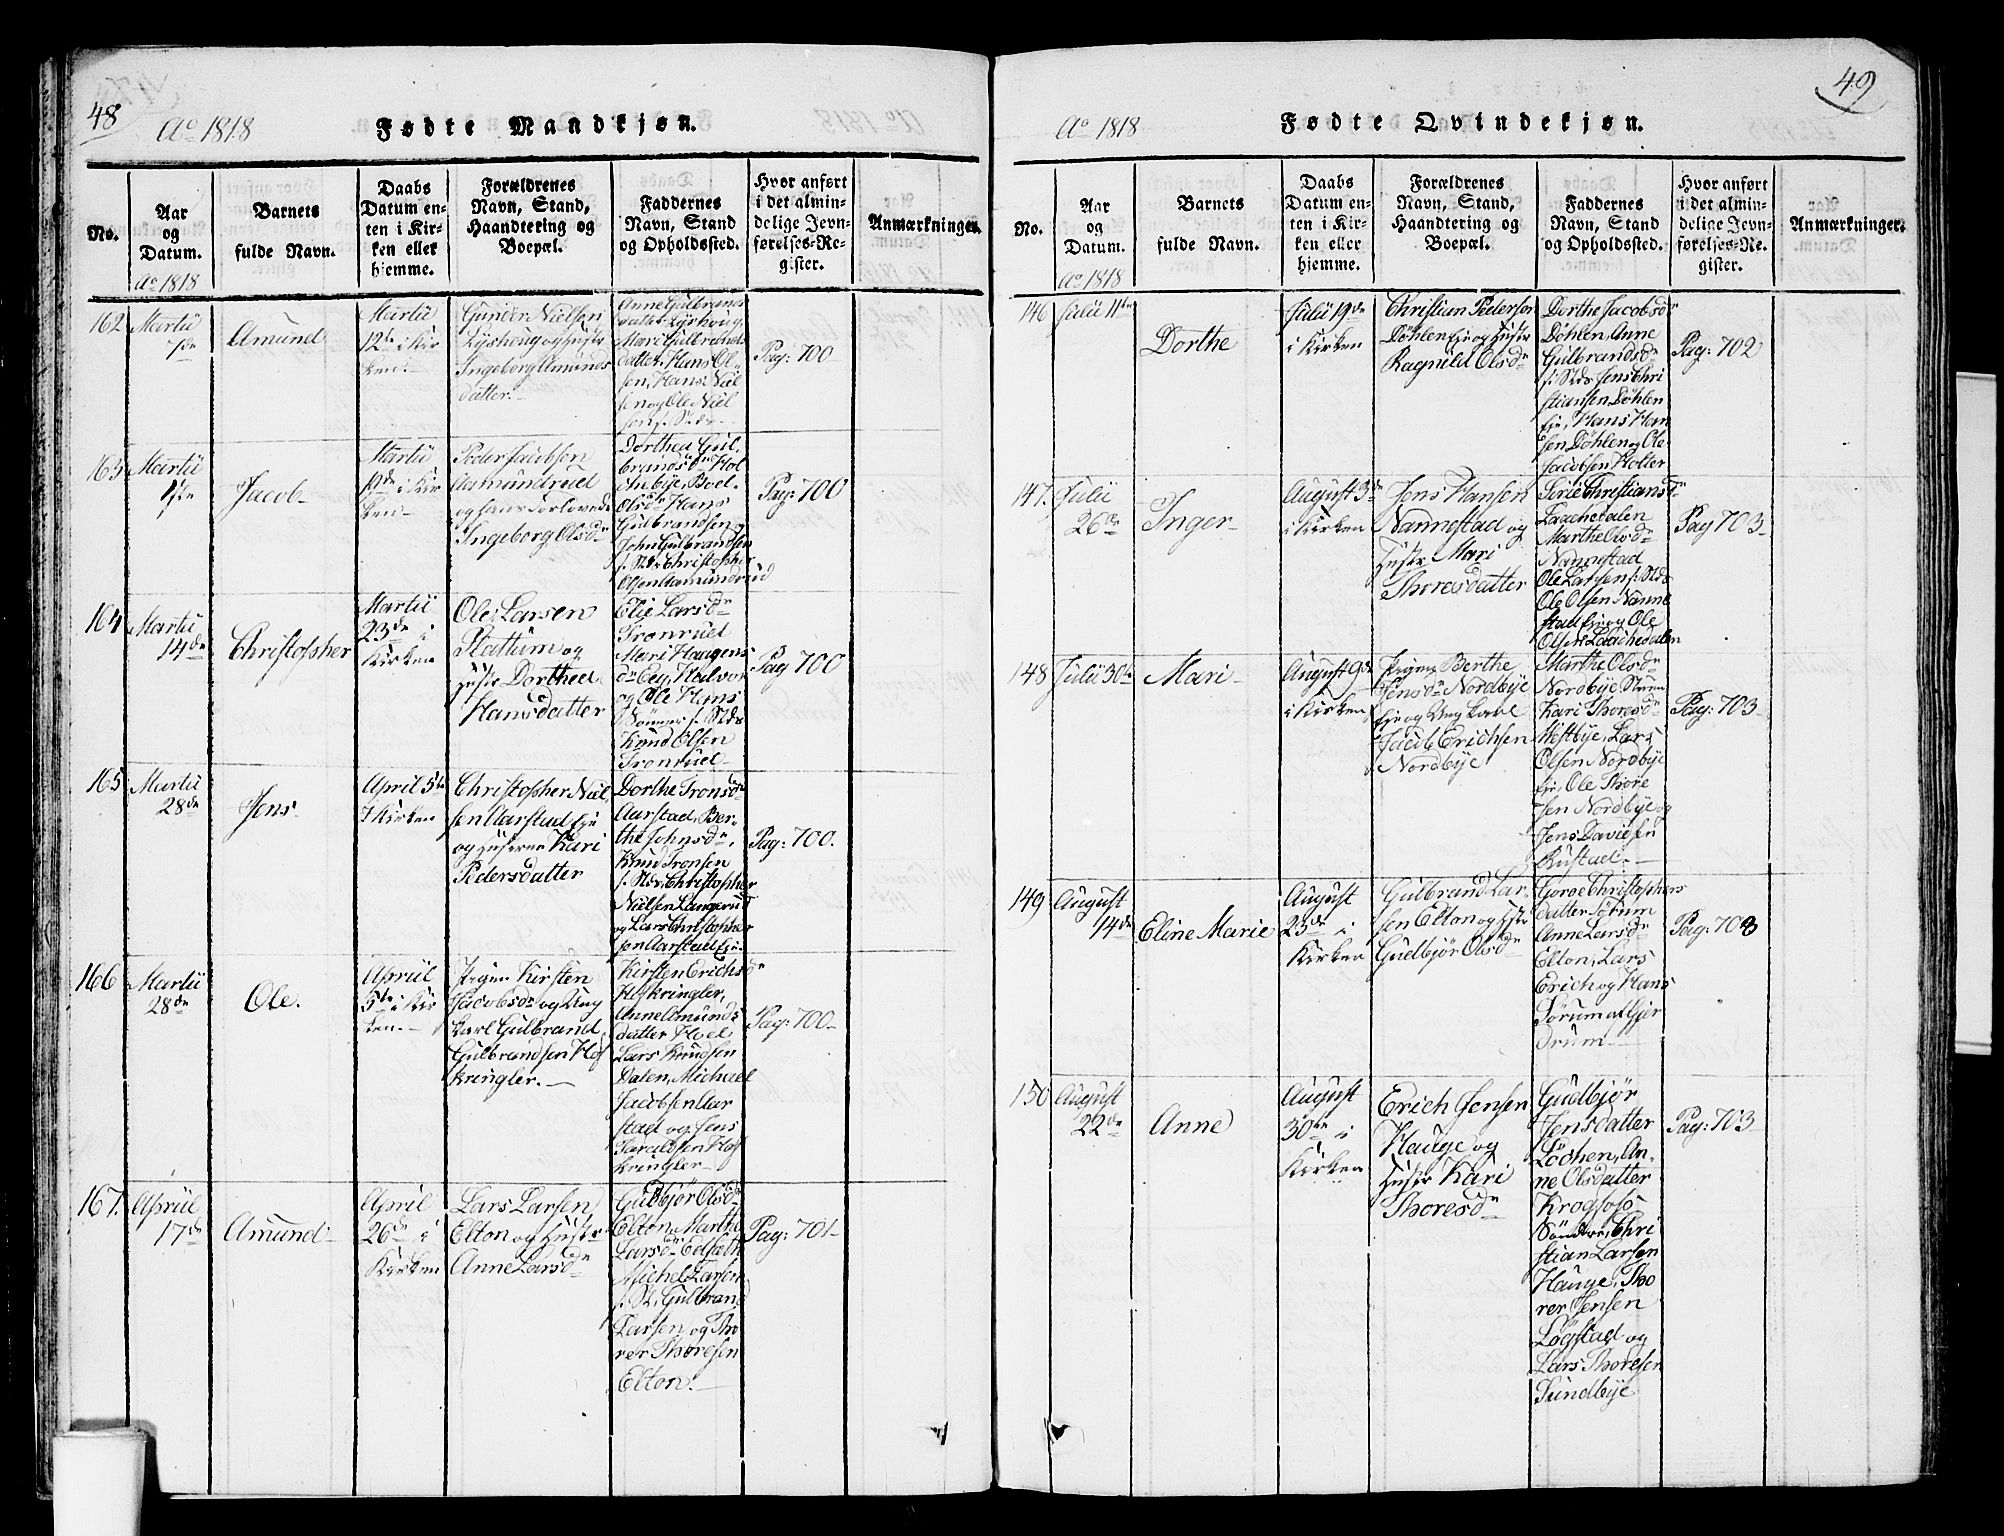 48
Ao 1818
Fødte Mandkjøn.
No.
Aar
og
Datum.
Barnets
fulde Navn.
Daabs
Datum en-
ten i Kir-
ken eller
hjemme.
Forældrenes
Navn, Stand,
Haandtering og
Boepæl.
Faddernes
Navn, Stand
og Opholdssted.
Hvor anført
i det almin-
delige Jevn-
førelses-Re-
gister.
Anmærkninger.
Ao 1818
162
Martii
7de
Amund
Martii
12te i Kir
ken.
Gunder Nielsen
Lyshoug og Hustr
Ingeborg Amunds
datter.
Anne Gulbrands
datter Lyshoug,
Mari Gulbrands
datter, Hans Ol-
sen, Hans Niel
sen og Ole Niel
sen f. Stds.
Pag: 700
163
Martii
1ste
Jacob
Martii
i Kir
ken
Peder Jacobsen
Aamundrud
og hans Forlovede
Ingeborg Olsdr
Dorthea Gul-
brandsdr Hol
Boel
Olsdr Hans
Gulbrandsen og
John Gulbrandsen
f. Stds Christopher
Olsen Aamundrud
Pag: 700
164
Martii
14de
Christopher
Martii
23de i
Kirken
Ole Larsen
Stattum og
Hustr Dorthea
Hansdatter
Elie Larsdr
Tronrud
Mari Haagens
dr Halvor
og Ole Hans
Sønner f. Stds
Knud Olsen
Tronrud
Pag 700
165
Martii
28de
Jens
April 5te
I Kirken
Christopher Niel
sen Aarstad Eje
og Hustrue Kari
Pedersdatter
Dorthe Tronsdr
Aarstad, Ber-
the Johnsdr,
Knud Tronsen
f. Stds, Christopher
Nielsen Langerud
og Lars Christopher
sen Aarstad Eje.
Pag: 700.
166
Martii
28de
Ole.
Apriil
5te i Kir
ken.
Pigen Kirsten
Jacobsdr og Ung
karl Gulbrand
Gulbrandsen Høf
kringler.
Kirsten Erichsdr
Høfkringler,
Anne Amunds
datter Hoel
Lars Knudsen
Dalen, Michael
Jacobsen Aar
stad og Jens
Haraldsen Høf
kringler
Pag: 700
167.
Apriil
17de
Amund
April
26de i
Kirken
Lars Larsen
Elton og Hustr
Anne Larsdr
Gudbjør Olsdr
Elton, Marthe
Larsdr Edsæth
Michel Larsen
f. St, Gulbrand
Larsen og Tho
rer Thoresen
Elton.
Pag: 701
49
Ao 1818
Fødte Qvindekjøn.
No.
Aar
og
Datum.
Barnets
fulde Navn.
Daabs
Datum en-
ten i Kir-
ken eller
hjemme.
Forældrenes
Navn, Stand,
Haandtering og
Boepæl.
Faddernes
Navn, Stand
og Opholdssted.
Hvor anført
i det almin-
delige Jevn-
førelses-Re-
gister.
Anmærkninger.
Ao 1818
146
Julii 11te
Dorthe
Julii 19de
i Kirken
Christian Pedersen
Döhlen Eje og Hustr
Ragnild Olsdr
Dorthe Jacobsdr
Döhlen, Anne
Gulbrandsdr
f. Stds Jens Chri
stiansen Döhlen
Eje, Hans Han
sen Döhlen og Ole
Jacobsen Holter
Pag: 702
147.
Julii
26de
Inger
August 3de
i Kirken
Jens Hansen
Nannestad og
Hustr Mari
Thoresdatter
Sirie Christiansdr
Laachedalen
Marthe Olsdr
Nannestad
Ole Larsen f. Stds
Ole Olsen Nanne
stad Eje og Ole
Olsen Laachedalen
Pag 703
148
Julii 30te
Mari
August 9de
i Kirken
Pigen Berthe
Jensdr Nordbye
Eje og Ung karl
Jacob Erichsen
Nordbye
Marthe Olsdr
Nordbye
Kari Thoresdr
Mestbye, Lars
Olsen Nordbye
Eje, Ole Thore
sen Nordbye og
Jens Davidsen
Rustad.
Pag: 703
149
August
14de
Eline Marie
August
23de i
Kirken
Gulbrand Lar
sen Elton og Hstr
Gudbjör Olsdr
Goroe Christophers
datter Sörum
Anne Larsdr
Elton, Lars
Erich og Hans
Sörum af Gjer
drum
Pag: 703
150
August
22de
Anne
August
30te i
Kirken
Erich Jensen
Hauge og
Hustr Kari
Thoresdr
Gudbjör
Jensdatter
Löchen, An-
ne Olsdatter
Krogfoss
Søndre, Chri
stian Larsen
Hauge, Tho
rer Jensen
Løgstad og
Lars Thoresen
Sundbye
Pag: 703